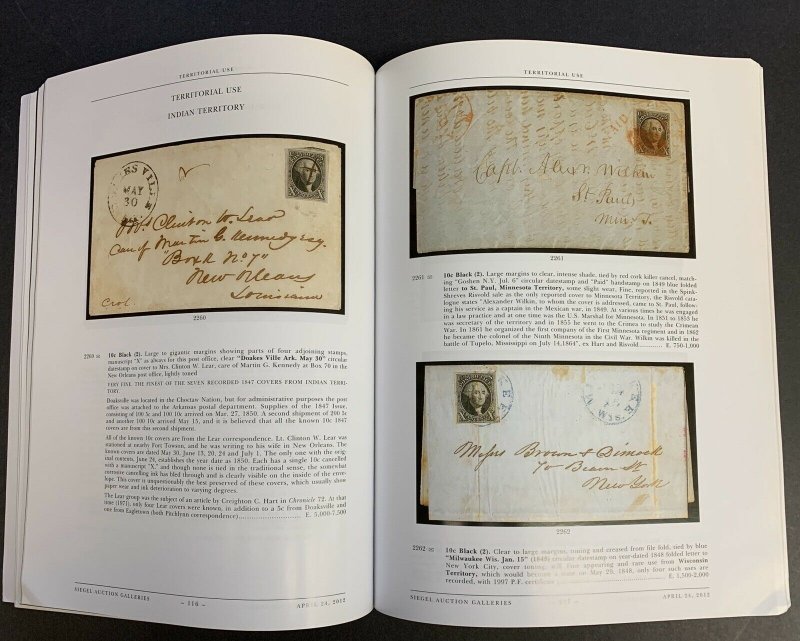 TERRITORIAL USE
TERRITORIAL USE
INDIAN TERRITORY
MAY
30
Mrs. Clinton W. Lear
Care of Martin G. Kennedy esq.
"Box No 7"
New Orleans
Louisiana
2260
2260 10c Black (2). Large to gigantic margins showing parts of four adjoining stamps,
manuscript "X" as always for this post office, clear "Doakes Ville Ark. May 30" circular
datestamp on cover to Mrs. Clinton W. Lear, care of Martin G. Kennedy at Box 70 in the
New Orleans post office, lightly toned
VERY FINE. THE FINEST OF THE SEVEN RECORDED 1847 COVERS FROM INDIAN TERRI-
TORY.
Doaksville was located in the Choctaw Nation, but for administrative purposes the post
office was attached to the Arkansas postal department. Supplies of the 1847 Issue,
consisting of 100 5c and 100 10c arrived on Mar. 27, 1850. A second shipment of 200 5c
and another 100 10c arrived May 15, and it is believed that all the known 10c 1847
covers are from this second shipment.
All of the known 10c covers are from the Lear correspondence. Lt. Clinton W. Lear was
stationed at nearby Fort Towson, and he was writing to his wife in New Orleans. The
known covers are dated May 30, June 13, 20, 24 and July 1. The only one with the orig-
inal contents, June 20, establishes the year date as 1850. Each has a single 10c cancelled
with a manuscript "X," and though none is tied in the traditional sense, the somewhat
corrosive cancelling ink has bled through and is clearly visible on the inside of the enve-
lope. This cover is unquestionably the best preserved of these covers, which usually show
paper wear and ink deterioration to varying degrees.
The Lear group was the subject of an article by Creighton C. Hart in Chronicle 72. At that
time (1971), only four Lear covers were known, in addition to a 5c from Doaksville and
one from Eagletown (both Pitchlynn correspondence) E. 5,000-7,500
SIEGEL AUCTION GALLERIES – 116 – APRIL 24, 2012
TERRITORIAL USE
Capt. Alexr. Wilkin
St. Paul
Min. T.
2261
2261 10c Black (2). Large margins to clear, intense shade, tied by red cork killer cancel, match-
ing "Goshen N.Y. Jul. 6" circular datestamp and "Paid" handstamp on 1849 blue folded
letter to St. Paul, Minnesota Territory, some slight wear, Fine, reported in the Spink-
Shreves Risvold sale as the only reported cover to Minnesota Territory, the Risvold cata-
logue states "Alexander Wilkin, to whom the cover is addressed, came to St. Paul, follow-
ing his service as a captain in the Mexican war, in 1849. At various times he was engaged
in a law practice and at one time was the U.S. Marshal for Minnesota. In 1851 to 1853 he
was secretary of the territory and in 1855 he went to the Crimea to study the Crimean
War. In 1861 he organized the first company of the First Minnesota regiment and in 1862
he became the colonel of the Ninth Minnesota in the Civil War. Wilkin was killed in the
battle of Tupelo, Mississippi on July 14,1864", ex Hart and Risvold E. 750-1,000
WIS.
Messrs Brown & Dimock
70 Beaver St
New York
2262
2262 10c Black (2). Clear to large margins, toning and creased from file fold, tied by blue
"Milwaukee Wis. Jan. 15" (1848) circular datestamp on year-dated 1848 folded letter to
New York City, cover toning, still Fine appearing and rare use from Wisconsin
Territory, which would become a state on May 29, 1848, only four such uses are
recorded, with 1997 P.F. certificate E. 1,500-2,000
SIEGEL AUCTION GALLERIES APRIL 24, 2012